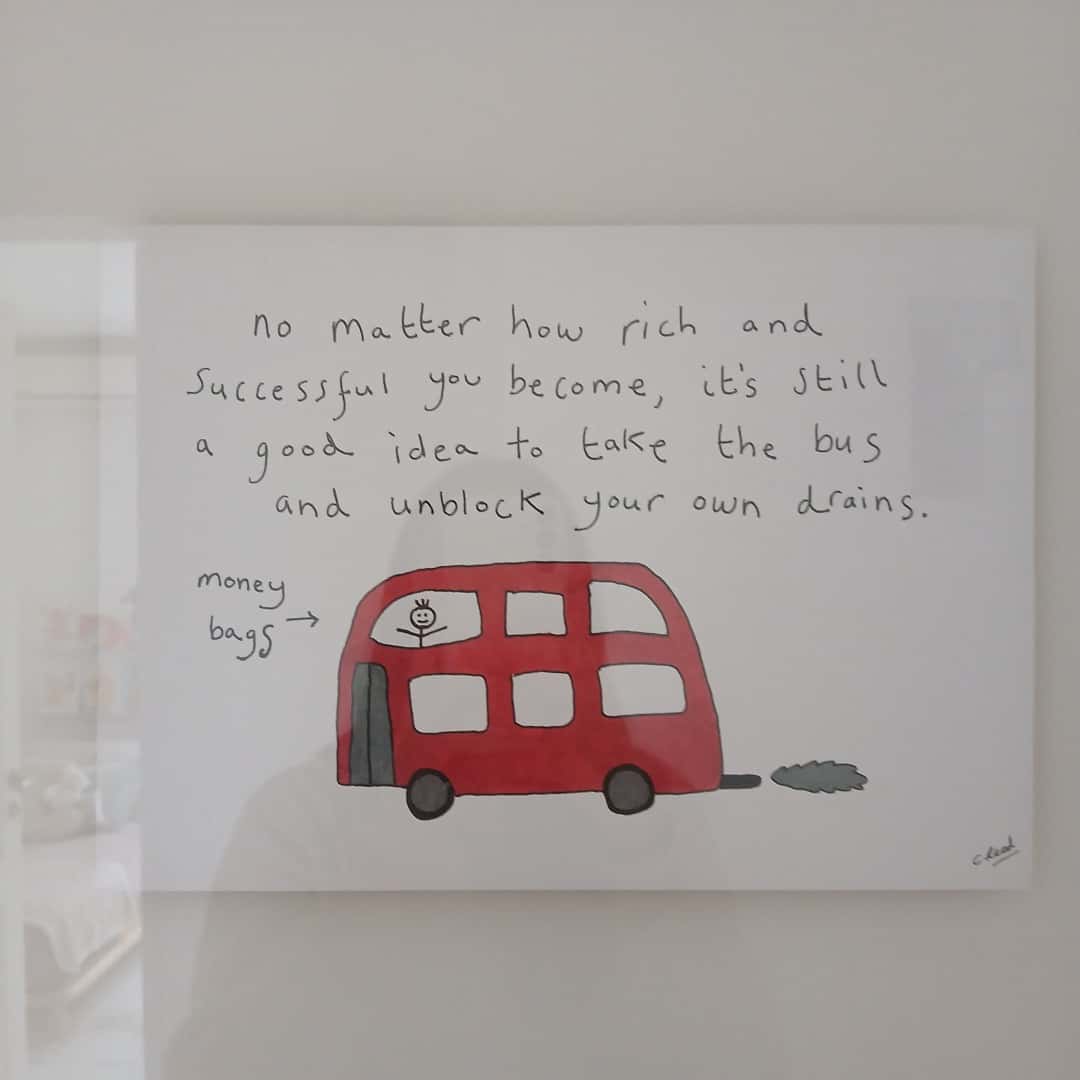 no matter how rich and
successful you become, it's still
a good idea to take the bus
and unblock your own drains.
money
bags →